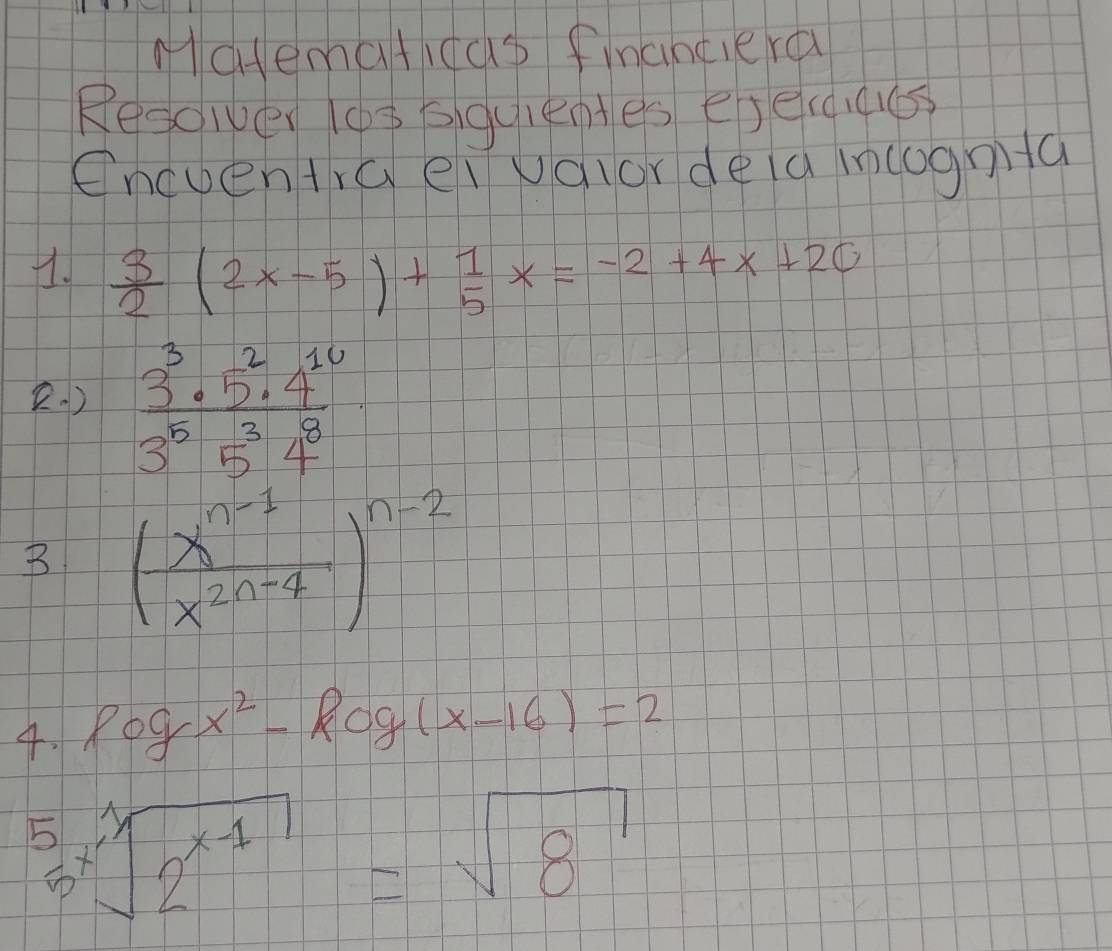 Matematicas financiera
Resolver los siguientes ejercicios
Encuentra el valor de la incognita
1. 3/2 (2x-5) + 1/5 x = -2 + 4x + 20
2.) 3³ · 5² · 4¹⁰ / 3⁵ 5³ 4⁸
3 (x^(n-1) / x^(2n-4))^(n-2)
4. log x² - log (x-16) = 2
5 √2^(x-1) = √8